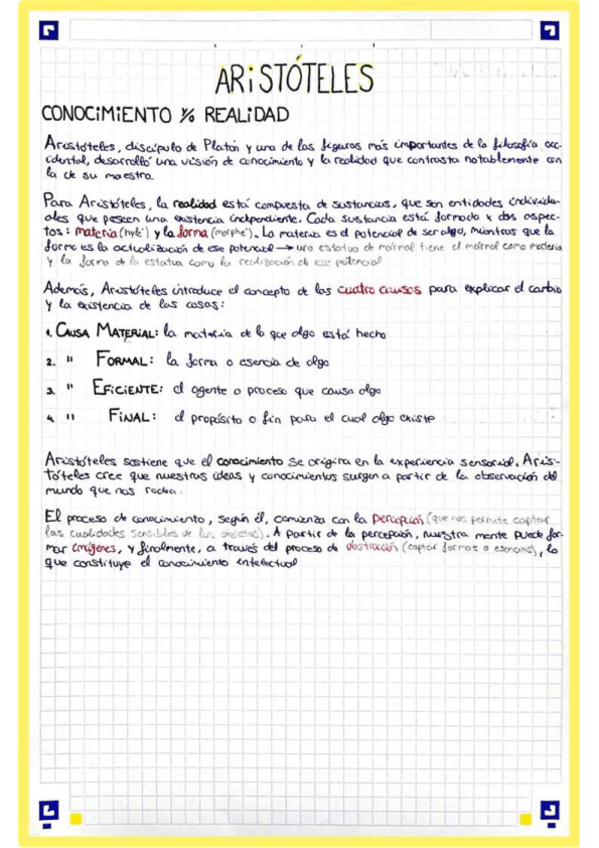 ARiSTÓTELES
CONOCiMiENTO Y/o REALiDAD
Aristóteles, discípulo de Platón y una de las figuras más importantes de la filosofía occ-
idental, desarrolló una visión de conocimiento y la realidad que contrasta notablemente con
la de su maestro.
Para Aristóteles, la realidad está compuesta de sustancias, que son entidades individu-
ales que poseen una existencia independiente. Cada sustancia está formada x dos aspec-
tos: materia (hylé) y la forma (morphé). La materia es el potencial de ser algo, mientras que la
forma es la actualización de ese potencial → una estatua de mármol tiene el mármol como materia
y la forma de la estatua como la realización de ese potencial
Además, Aristóteles introduce el concepto de las cuatro causas para explicar el cambio
y la existencia de las cosas:
1. CAUSA MATERiAL: la materia de lo que algo está hecho
2. " FORMAL: la forma o esencia de algo
3. " EFiCiENTE: el agente o proceso que causa algo
4. " FiNAL: el propósito o fin para el cual algo existe
Aristóteles sostiene que el conocimiento se origina en la experiencia sensorial. Aris-
tóteles cree que nuestras ideas y conocimientos surgen a partir de la observación del
mundo que nos rodea.
El proceso de conocimiento, según él, comienza con la percepción (que nos permite captar
las cualidades sensibles de los objetos). A partir de la percepción, nuestra mente puede for-
mar imágenes, y finalmente, a través del proceso de abstracción (captar formas o esencias), lo
que constituye el conocimiento intelectual